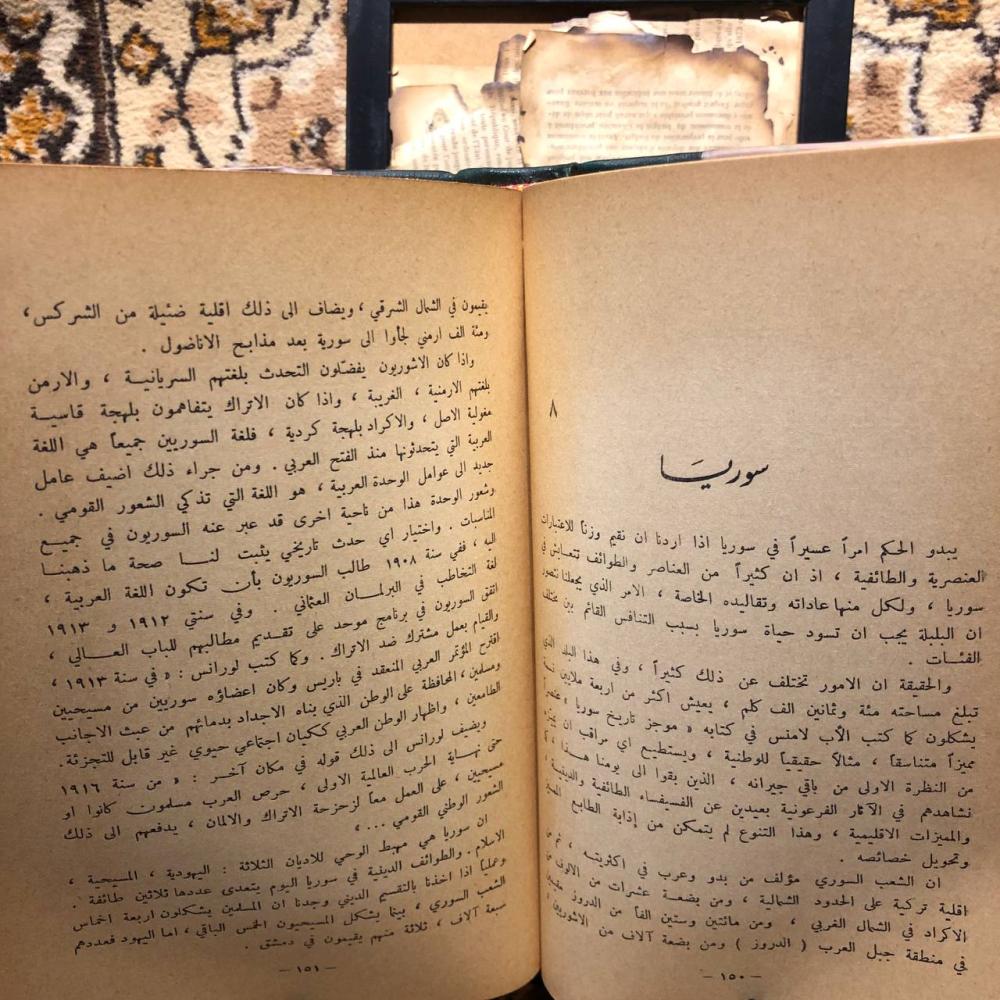 ٨
سوريا
يبدو الحكم امراً عسيراً في سوريا اذا اردنا ان نقيم وزناً للاعتبارات
العنصرية والطائفية ، اذ ان كثيراً من العناصر والطوائف تتعايش في
سوريا ، ولكل منها عاداته وتقاليده الخاصة ، الامر الذي يجعلنا نتصور
ان البلبلة يجب ان تسود حياة سوريا بسبب التنافس القائم بين مختلف
الفئات .
والحقيقة ان الامور تختلف عن ذلك كثيراً ، وفي هذا البلد الذي
تبلغ مساحته مئة وثمانين الف كلم ، يعيش اكثر من اربعة ملايين نسمة
يشكلون كما كتب الأب لامنس في كتابه « موجز تاريخ سوريا » عنصراً
مميزاً متناسقاً ، مثالاً حقيقياً للوطنية ، ويستطيع اي مراقب ان يميزه
من النظرة الاولى من باقي جيرانه ، الذين بقوا الى يومنا هذا ، كما
نشاهدهم في الآثار الفرعونية بعيدين عن الفسيفساء الطائفية والدينية ،
والمميزات الاقليمية ، وهذا التنوع لم يتمكن من إذابة الطابع المميز
وتحويل خصائصه .
ان الشعب السوري مؤلف من بدو وعرب في اكثريته ، ثم من
اقلية تركية على الحدود الشمالية ، ومن بضعة عشرات من الالوف من
الاكراد في الشمال الغربي ، ومن مائتين وستين الفاً من الدروز مقيمين
في منطقة جبل العرب ( الدروز ) ومن بضعة آلاف من الاشوريين
— ١٥٠ —
يقيمون في الشمال الشرقي ، ويضاف الى ذلك اقلية ضئيلة من الشركس ،
ومئة الف ارمني لجأوا الى سورية بعد مذابح الاناضول .
واذا كان الاشوريون يفضّلون التحدث بلغتهم السريانية ، والارمن
بلغتهم الارمنية ، الغريبة ، واذا كان الاتراك يتفاهمون بلهجة قاسية
مغولية الاصل ، والاكراد بلهجة كردية ، فلغة السوريين جميعاً هي اللغة
العربية التي يتحدثونها منذ الفتح العربي . ومن جراء ذلك اضيف عامل
جديد الى عوامل الوحدة العربية ، هو اللغة التي تذكي الشعور القومي .
وشعور الوحدة هذا من ناحية اخرى قد عبر عنه السوريون في جميع
المناسبات . واختيار اي حدث تاريخي يثبت لنا صحة ما ذهبنا
اليه ، ففي سنة ١٩٠٨ طالب السوريون بأن تكون اللغة العربية ،
لغة التخاطب في البرلمان العثماني . وفي سنتي ١٩١٢ و ١٩١٣
اتفق السوريون في برنامج موحد على تقديم مطاليبهم للباب العالي ،
والقيام بعمل مشترك ضد الاتراك . وكما كتب لورانس : « في سنة ١٩١٣ ،
اقترح المؤتمر العربي المنعقد في باريس وكان اعضاؤه سوريين من مسيحيين
ومسلمين ، المحافظة على الوطن الذي بناه الاجداد بدمائهم من عبث الاجانب
الطامعين ، واظهار الوطن العربي ككيان اجتماعي حيوي غير قابل للتجزئة .
ويضيف لورانس الى ذلك قوله في مكان آخر : « من سنة ١٩١٦
حتى نهاية الحرب العالمية الاولى ، حرص العرب مسلمون كانوا او
مسيحيين ، على العمل معاً لزحزحة الاتراك والالمان ، يدفعهم الى ذلك
الشعور الوطني القومي ... »
ان سوريا هي مهبط الوحي للاديان الثلاثة : اليهودية ، المسيحية ،
الاسلام . والطوائف الدينية في سوريا اليوم يتعدى عددها ثلاثين طائفة .
وعملياً اذا اخذنا بالتقسيم الديني وجدنا ان المسلمين يشكلون اربعة اخماس
الشعب السوري ، بينما يشكل المسيحيون الخمس الباقي ، اما اليهود فعددهم
سبعة آلاف ، ثلاثة منهم يقيمون في دمشق .
— ١٥١ —